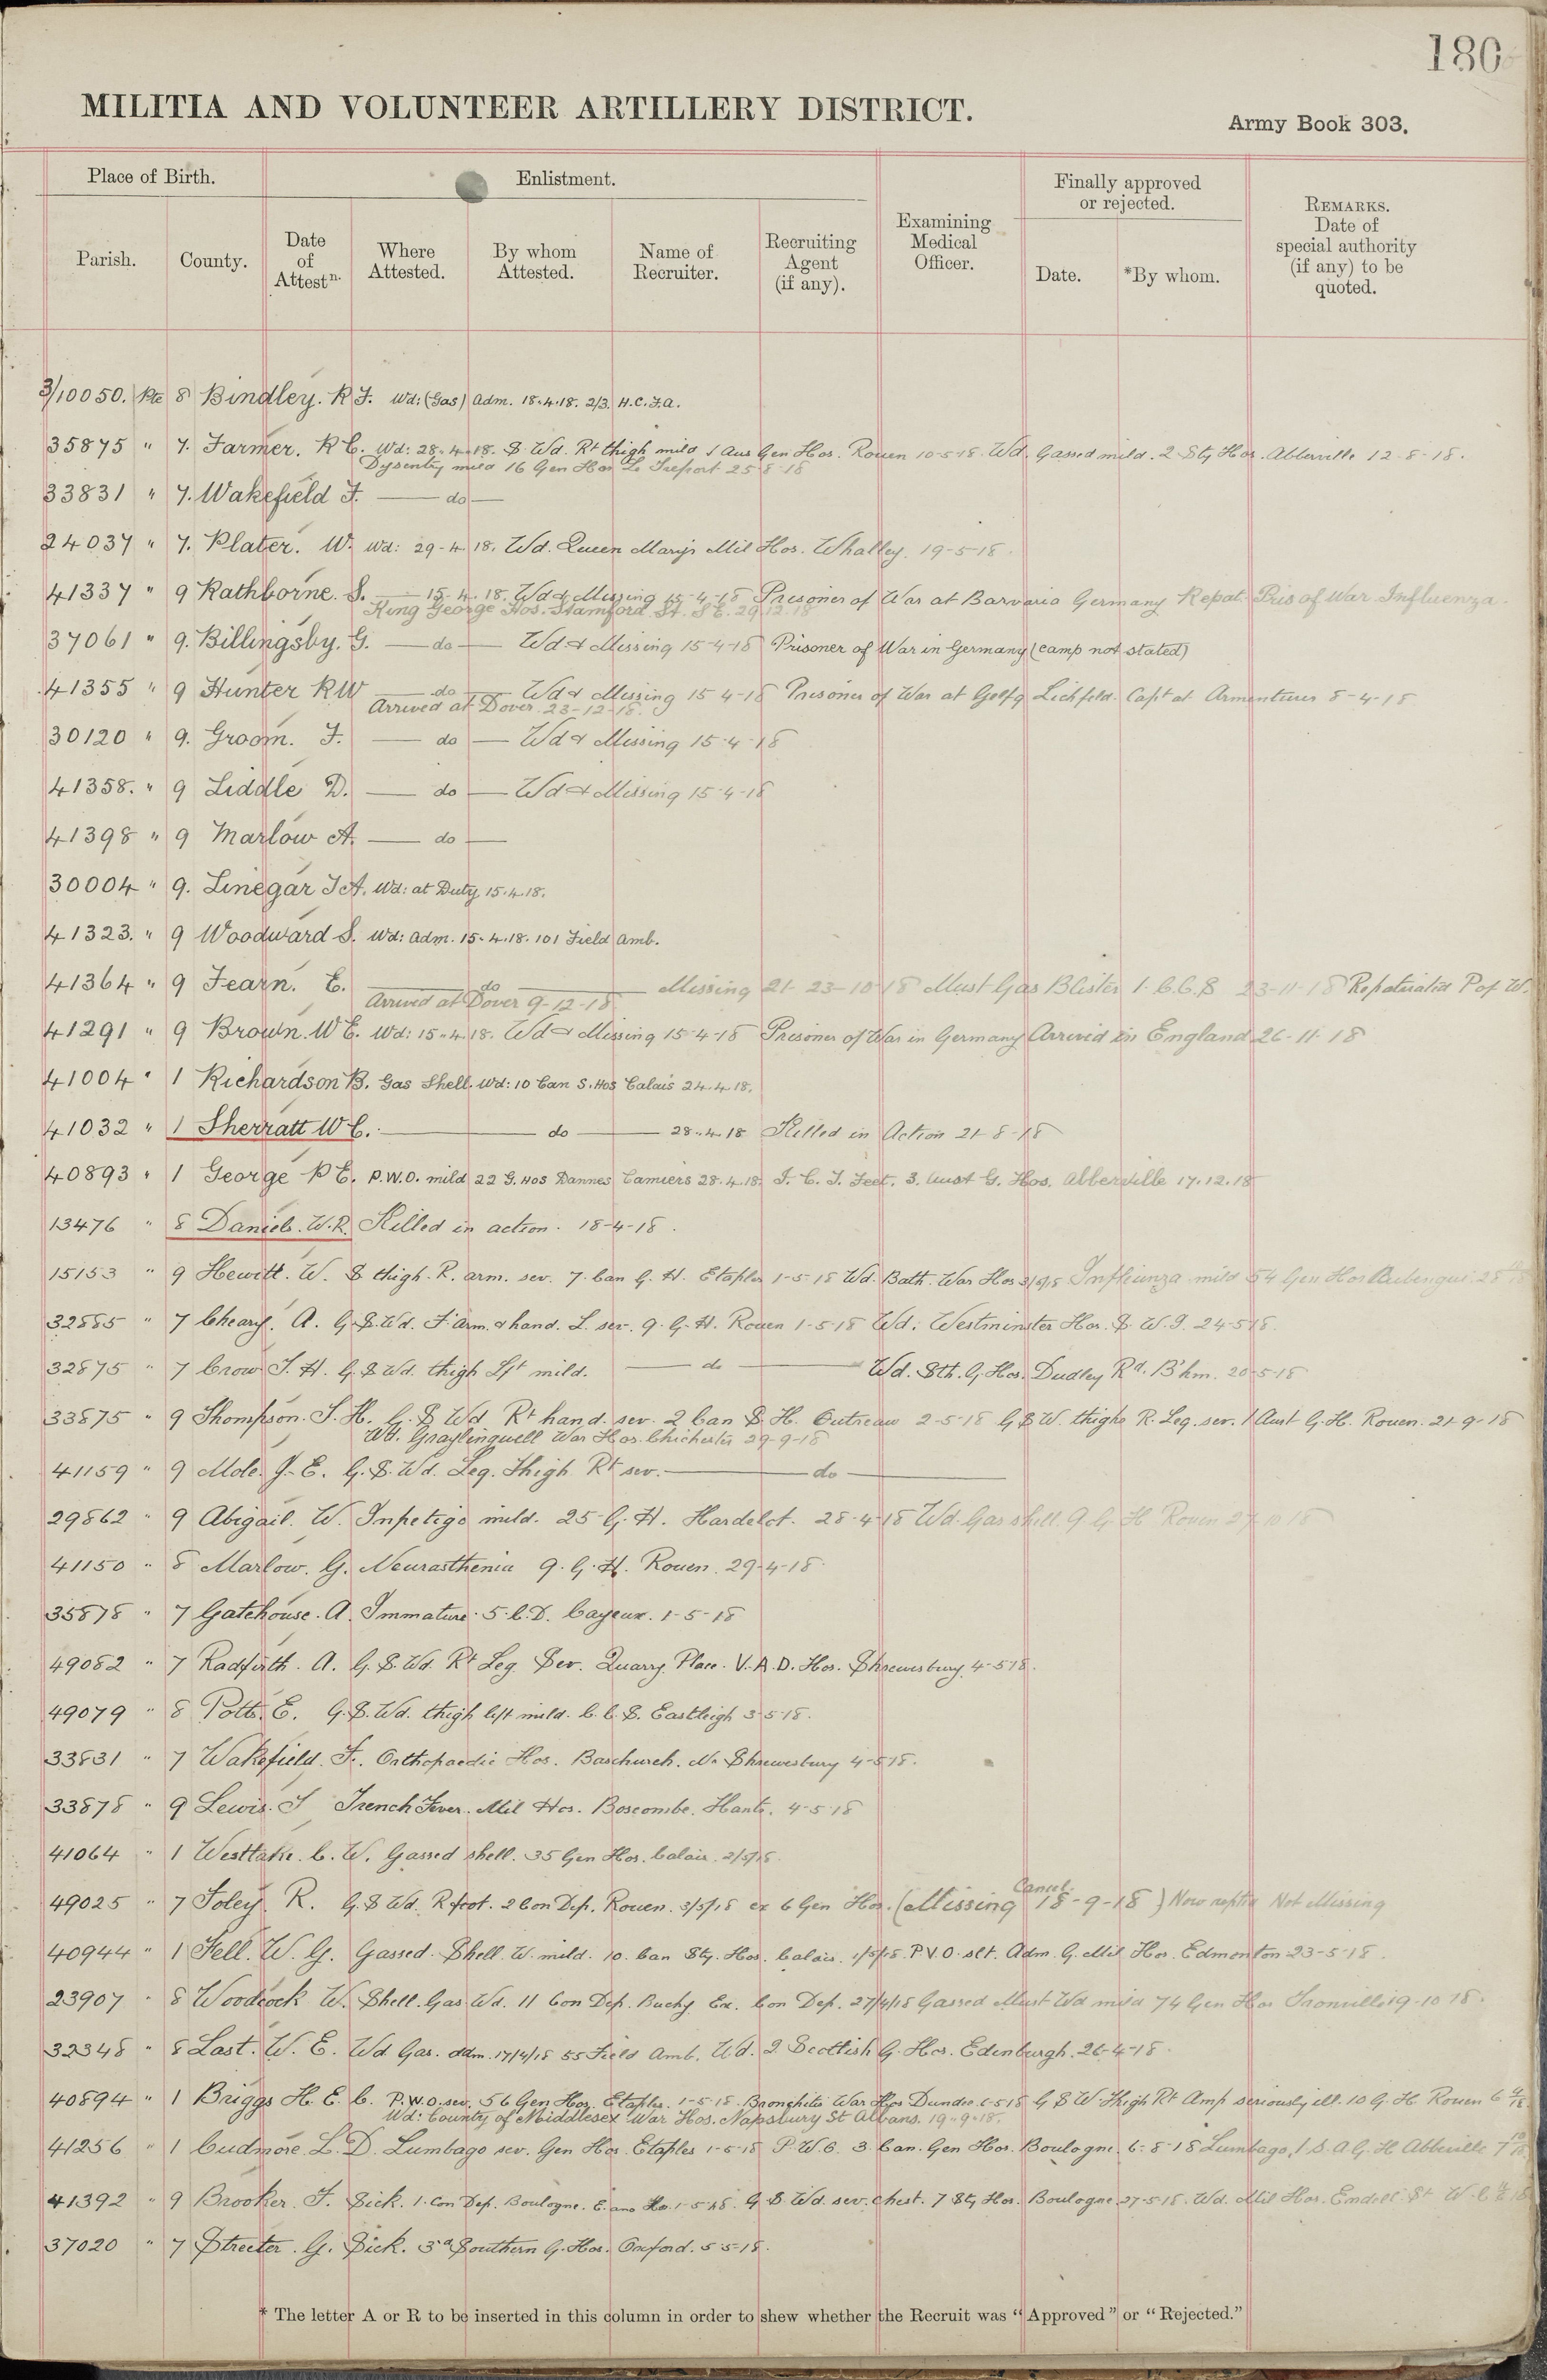 180
MILITIA AND VOLUNTEER ARTILLERY DISTRICT.
Army Book 303.
Place of Birth.
Enlistment.
Finally approved
or rejected.
Parish.
County.
Date
of
Attestn.
Where
Attested.
By whom
Attested.
Name of
Recruiter.
Recruiting
Agent
(if any).
Examining
Medical
Officer.
Date.
*By whom.
REMARKS.
Date of
special authority
(if any) to be
quoted.
3/10050. Pte 8 Bindley. R F. Wd: (Gas) Adm. 18.4.18. 2/3. H.C.F.A.
35875 " 7. Farmer. R C. Wd: 28.4.18. S. Wd. Rt thigh mild 1 Aus Gen Hos. Rouen 10-5-18. Wd. Gassed mild. 2 Sty Hos. Abbeville 12-8-18.
Dysentry mild 16 Gen Hos Le Treport 25-8-18
33831 " 7. Wakefield F. — do —
24037 " 7. Plater. W. Wd: 29-4-18. Wd. Queen Marys Mil Hos. Whalley. 19-5-18.
41337 " 9 Rathborne. S. — 15.4.18. Wd & Missing 15-4-18 Prisoner of War at Barvaria Germany Repat. Pris of War Influenza.
King George Hos. Stamford St. S E. 29.12.18
37061 " 9. Billingsby. G. — do — Wd & Missing 15-4-18 Prisoner of War in Germany (camp not stated)
41355 " 9 Hunter R W — do — Wd & Missing 15-4-18 Prisoner of War at Lichfeld. Capt at Armentieres 8-4-18
Arrived at Dover 23-12-18.
30120 " 9. Groom. F. — do — Wd & Missing 15-4-18
41358. " 9 Liddle D. — do — Wd & Missing 15-4-18
41398 " 9 Marlow A. — do —
30004 " 9. Linegar J A. Wd: at Duty 15.4.18.
41323. " 9 Woodward S. Wd: adm. 15.4.18. 101 Field Amb.
41364 " 9 Fearn. E. — do — Missing 21-23-10-18 Must Gas Blister 1. C.C.S 23-11-18 Repatriated P of W.
Arrived at Dover 9-12-18
41291 " 9 Brown. W E. Wd: 15.4.18. Wd & Missing 15-4-18 Prisoner of War in Germany Arrived in England 26-11-18
41004 " 1 Richardson B. Gas Shell. Wd: 10 Can S. Hos Calais 24.4.18.
41032 " 1 Sherratt W C. — do — 28.4.18 Killed in Action 21-8-18
40893 " 1 George P E. P.W.O. mild 22 G. Hos Dannes Camiers 28.4.18. I. C. T. Feet. 3. Aust G. Hos. Abbeville 17.12.18
13476 " 8 Daniels. W. R. Killed in action. 18-4-18.
15153 " 9 Hewitt. W. S thigh. R. arm. sev. 7. Can G. H. Etaples 1-5-18 Wd. Bath. War Hos Influenza mild 54 Gen Hos
32885 " 7 Cheary. A. G. S. Wd. F'arm. & hand. L. sev. 9. G. H. Rouen 1-5-18 Wd. Westminster Hos. S. W. 24-5-18.
32875 " 7 Crow J. H. G. S Wd. thigh Lft mild. — do — Wd. Sth. G. Hos. Dudley Rd. B'hm. 20-5-18
33875 " 9 Thompson. S. H. G. S Wd Rt hand. sev. 2 Can S. H. Outreau 2-5-18 G S W. thighs R. Leg. sev. 1 Aust G. H. Rouen. 21-9-18
Wd. Graylingwell War Hos. Chichester 29-9-18
41159 " 9 Mole. J. E. G. S. Wd. Leg. Thigh. Rt sev. — do —
29862 " 9 Abigail. W. Inpetigo mild. 25 G. H. Hardelot. 28-4-18 Wd. Gas shell. 9 G. H Rouen 27-10-18
41150 " 8 Marlow. G. Neurasthenia 9. G. H. Rouen. 29-4-18
35878 " 7 Gatehouse. A. Immature. 5. C. D. Cayeux. 1-5-18
49082 " 7 Radfirth. A. G. S. Wd. Rt Leg Sev. Quarry Place. V. A. D. Hos. Shrewsbury 4-5-18.
49079 " 8 Potts. E. G. S. Wd. thigh left mild. C. C. S. Eastleigh 3-5-18.
33831 " 7 Wakefield. F. Orthopaedic Hos. Baschurch. Nr Shrewsbury 4-5-18.
33878 " 9 Lewis. J Trench Fever. Mil Hos. Boscombe. Hants. 4-5-18
41064 " 1 Westlake. C. W. Gassed shell. 35 Gen Hos. Calais. 2/5/18.
49025 " 7 Foley. R. G. S Wd. R foot. 2 Con Dep. Rouen. 3/5/18 ex 6 Gen Hos. (Missing 18-9-18) Now reptd Not Missing
Cancel.
40944 " 1 Fell. W. G. Gassed. Shell. W. mild. 10. Can Sty. Hos. Calais. 1/5/18. P.V.O. slt. Adm. G. Mil Hos. Edmonton 23-5-18.
23907 " 8 Woodcock W. Shell. Gas Wd. 11 Con Dep. Buchy Ex. Con Dep. 27/4/18 Gassed Must Wd mild 74 Gen Hos Tronville 19-10-18.
32348 " 8 Last. W. E. Wd. Gas. adm. 17/4/18 55 Field Amb. Wd. 2 Scottish G. Hos. Edenburgh. 26-4-18.
40894 " 1 Briggs H. E. C. P.W.O. sev. 56 Gen Hos. Etaples. 1-5-18. Bronchitis War Hos Dundee 6-5-18 G S W Thigh Rt Amp seriously ill. 10 G. H Rouen
Wd: County of Middlesex War Hos. Napsbury St Albans. 19-9-18.
41256 " 1 Cudmore. L. D. Lumbago sev. Gen Hos. Etaples 1-5-18 P. W. O. 3. Can. Gen Hos. Boulogne. 6-8-18 Lumbago, 1. S. A G. H Abbeville
41392 " 9 Brooker. F. Sick. 1. Con Dep. Boulogne. 1-5-18. G S. Wd. sev. chest. 7 Sty Hos. Boulogne 27-5-18. Wd. Mil Hos. Endell St W. C
37020 " 7 Streeter. G. Sick. 3d Southern G. Hos. Oxford. 5-5-18.
* The letter A or R to be inserted in this column in order to shew whether the Recruit was "Approved" or "Rejected."